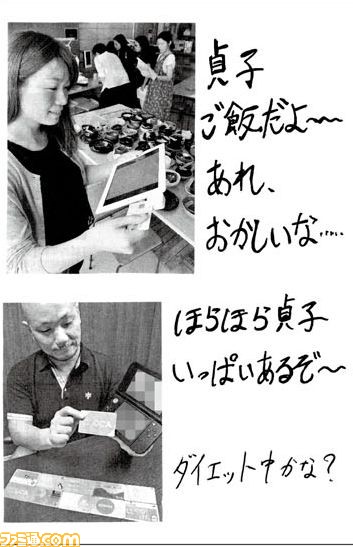 貞子
ご飯だよ〜〜
あれ、
おかしいな……
ほらほら貞子
いっぱいあるぞ〜
ダイエット中かな?
ファミ通.com